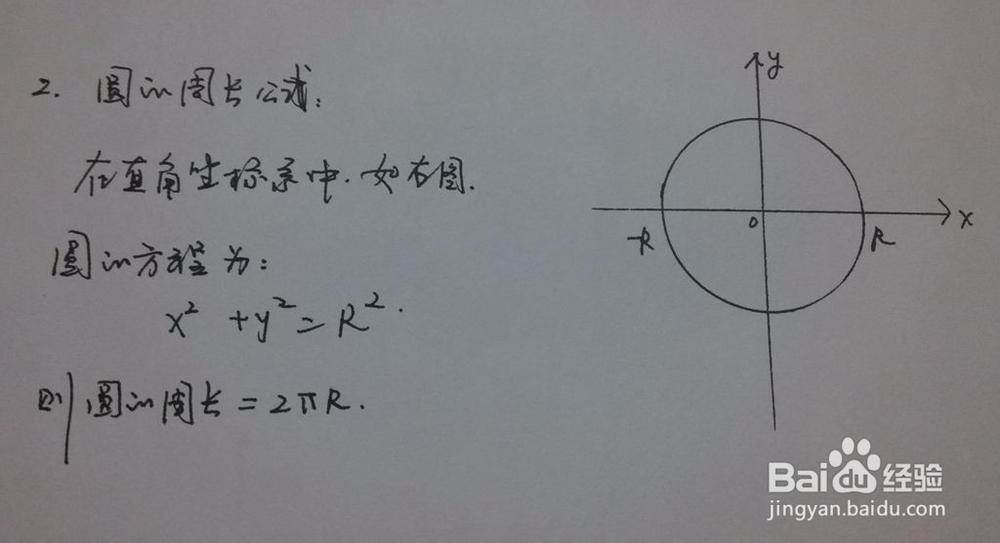 2. 圆的周长公式:
在直角坐标系中.如右图.
圆的方程为:
x² + y² = R².
则圆的周长 = 2πR.
y
x
0
-R
R
Bai du 经验
jingyan.baidu.com